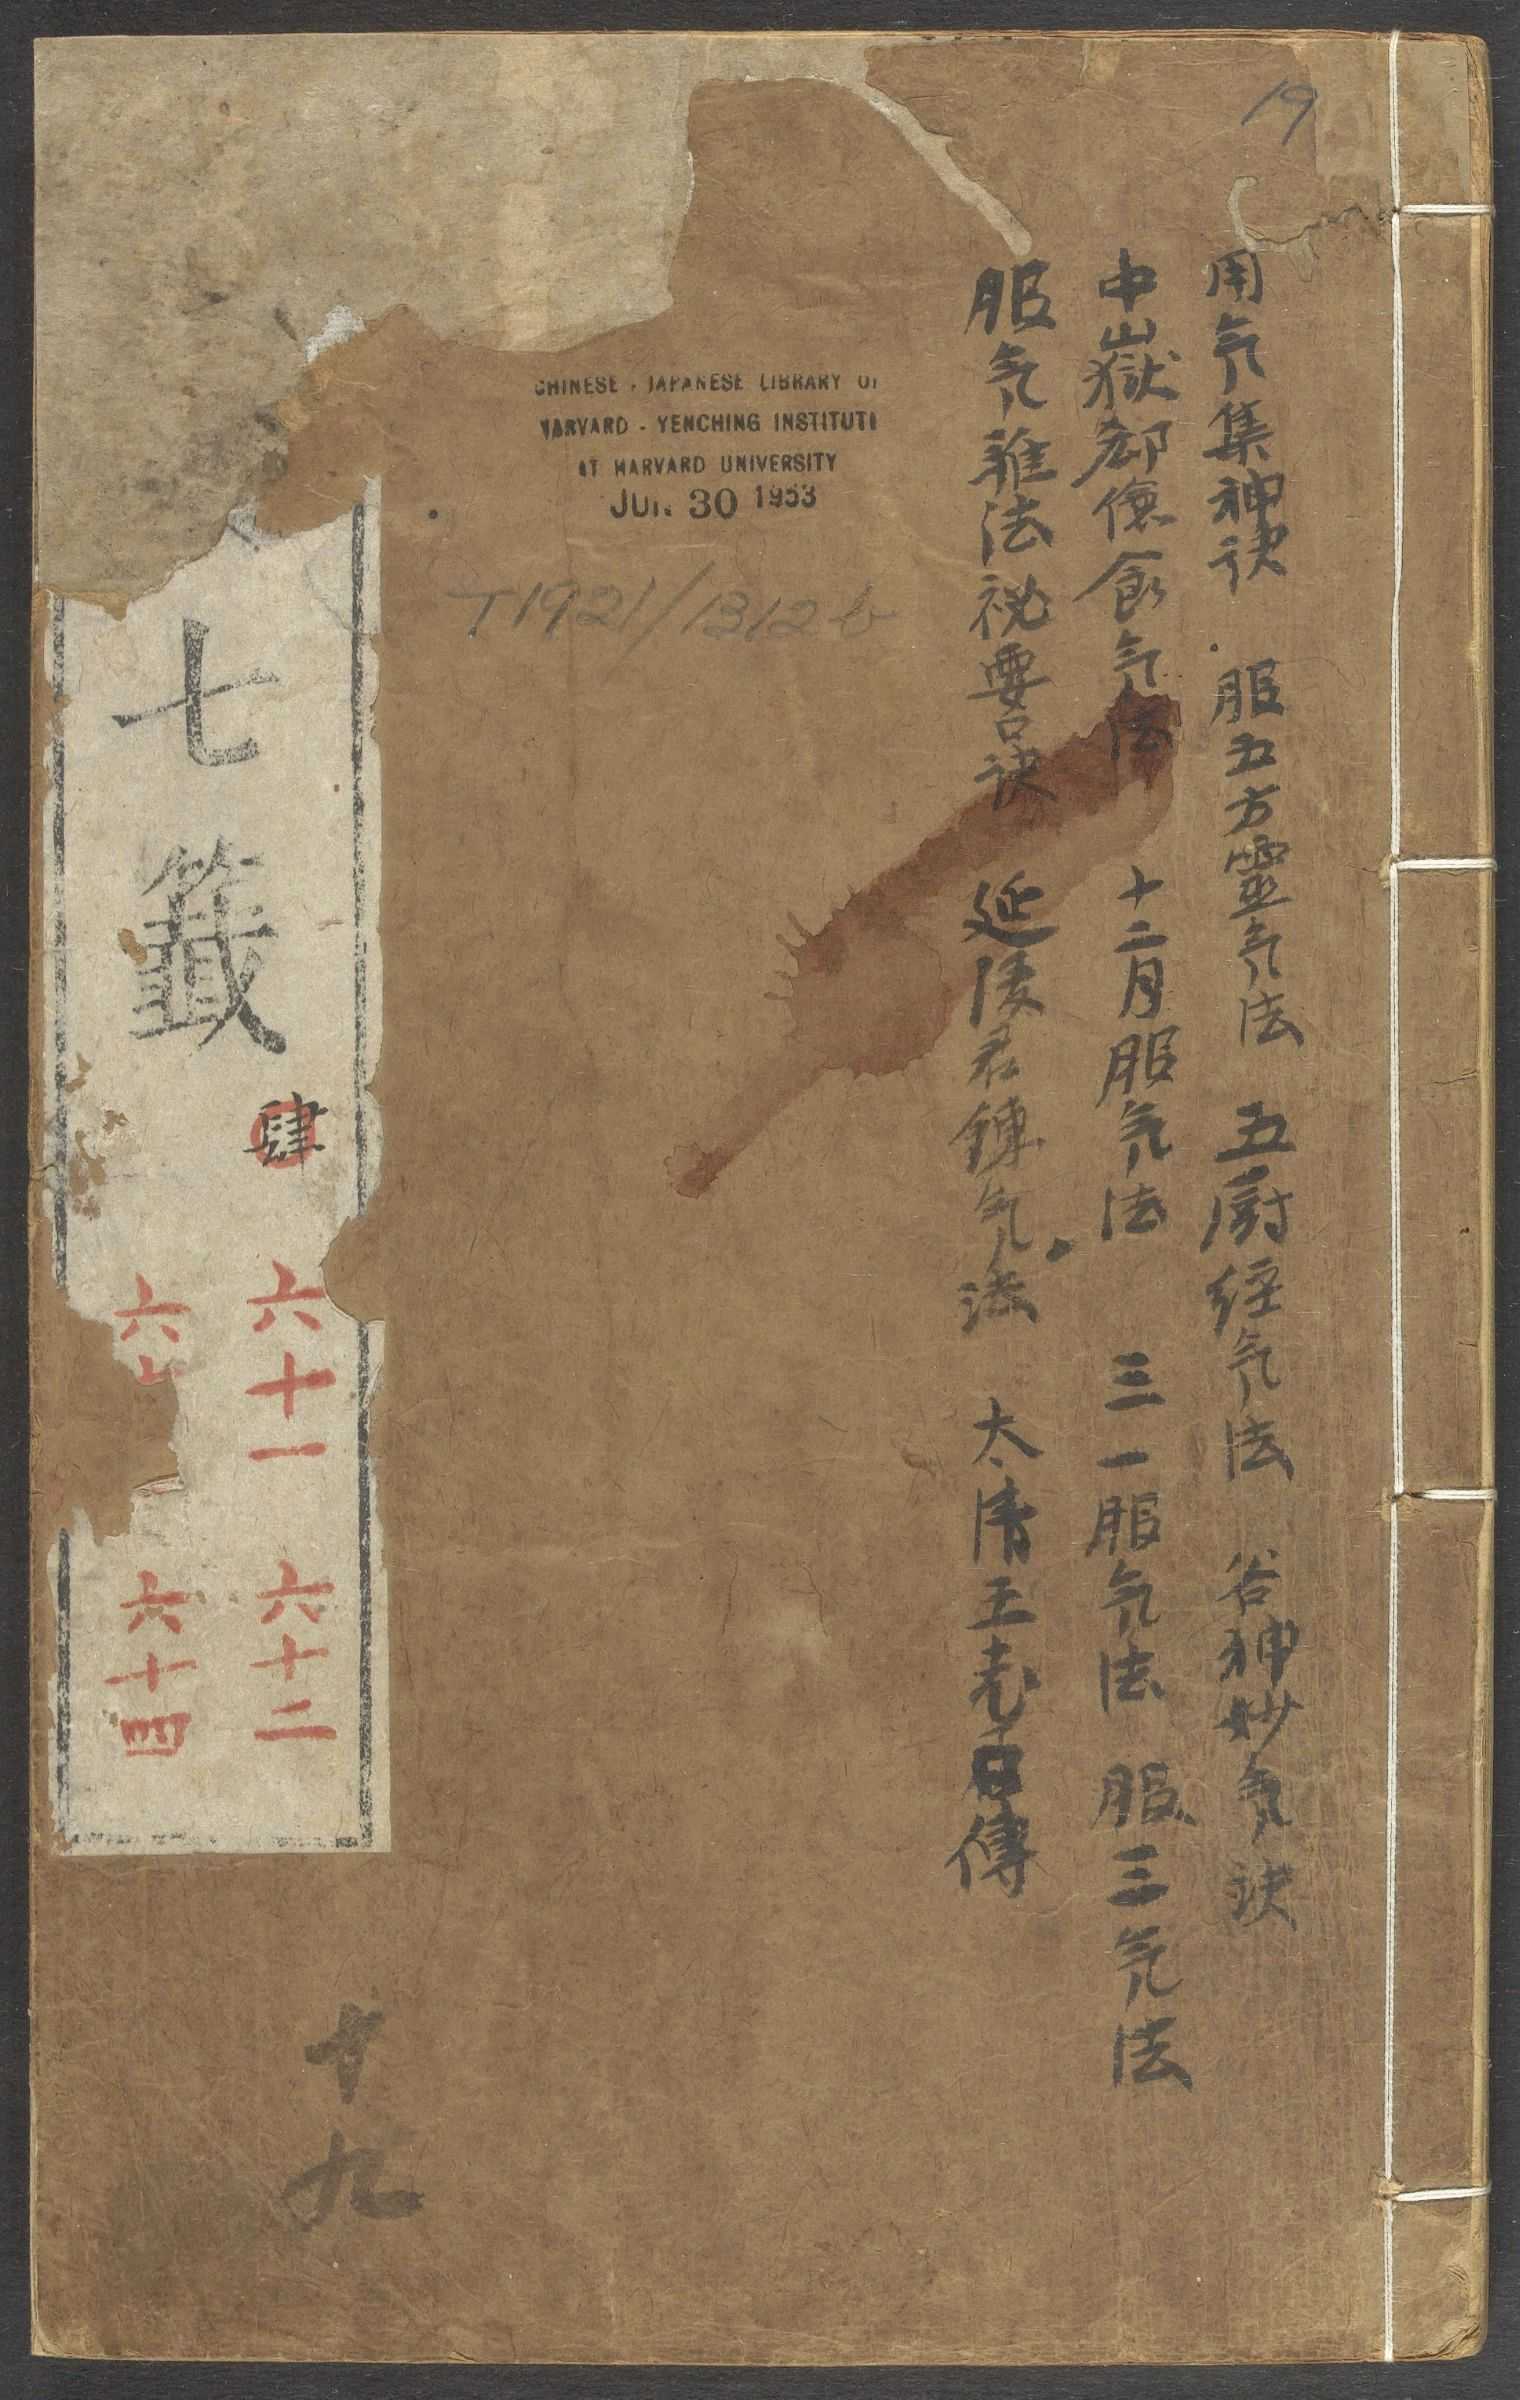 19
用气集神訣 服五方靈气法 五厨經气法 谷神妙气訣
中嶽郄儉食气法 十二月服气法 三一服气法 服三气法
服气雜法祕要口訣 延陵君鍊气法 太清王老君傳
CHINESE - JAPANESE LIBRARY OF
HARVARD - YENCHING INSTITUTE
AT HARVARD UNIVERSITY
JUN 30 1953
T1921/1312b
七籤
肆
六十一 六十二
六十 六十四
十九